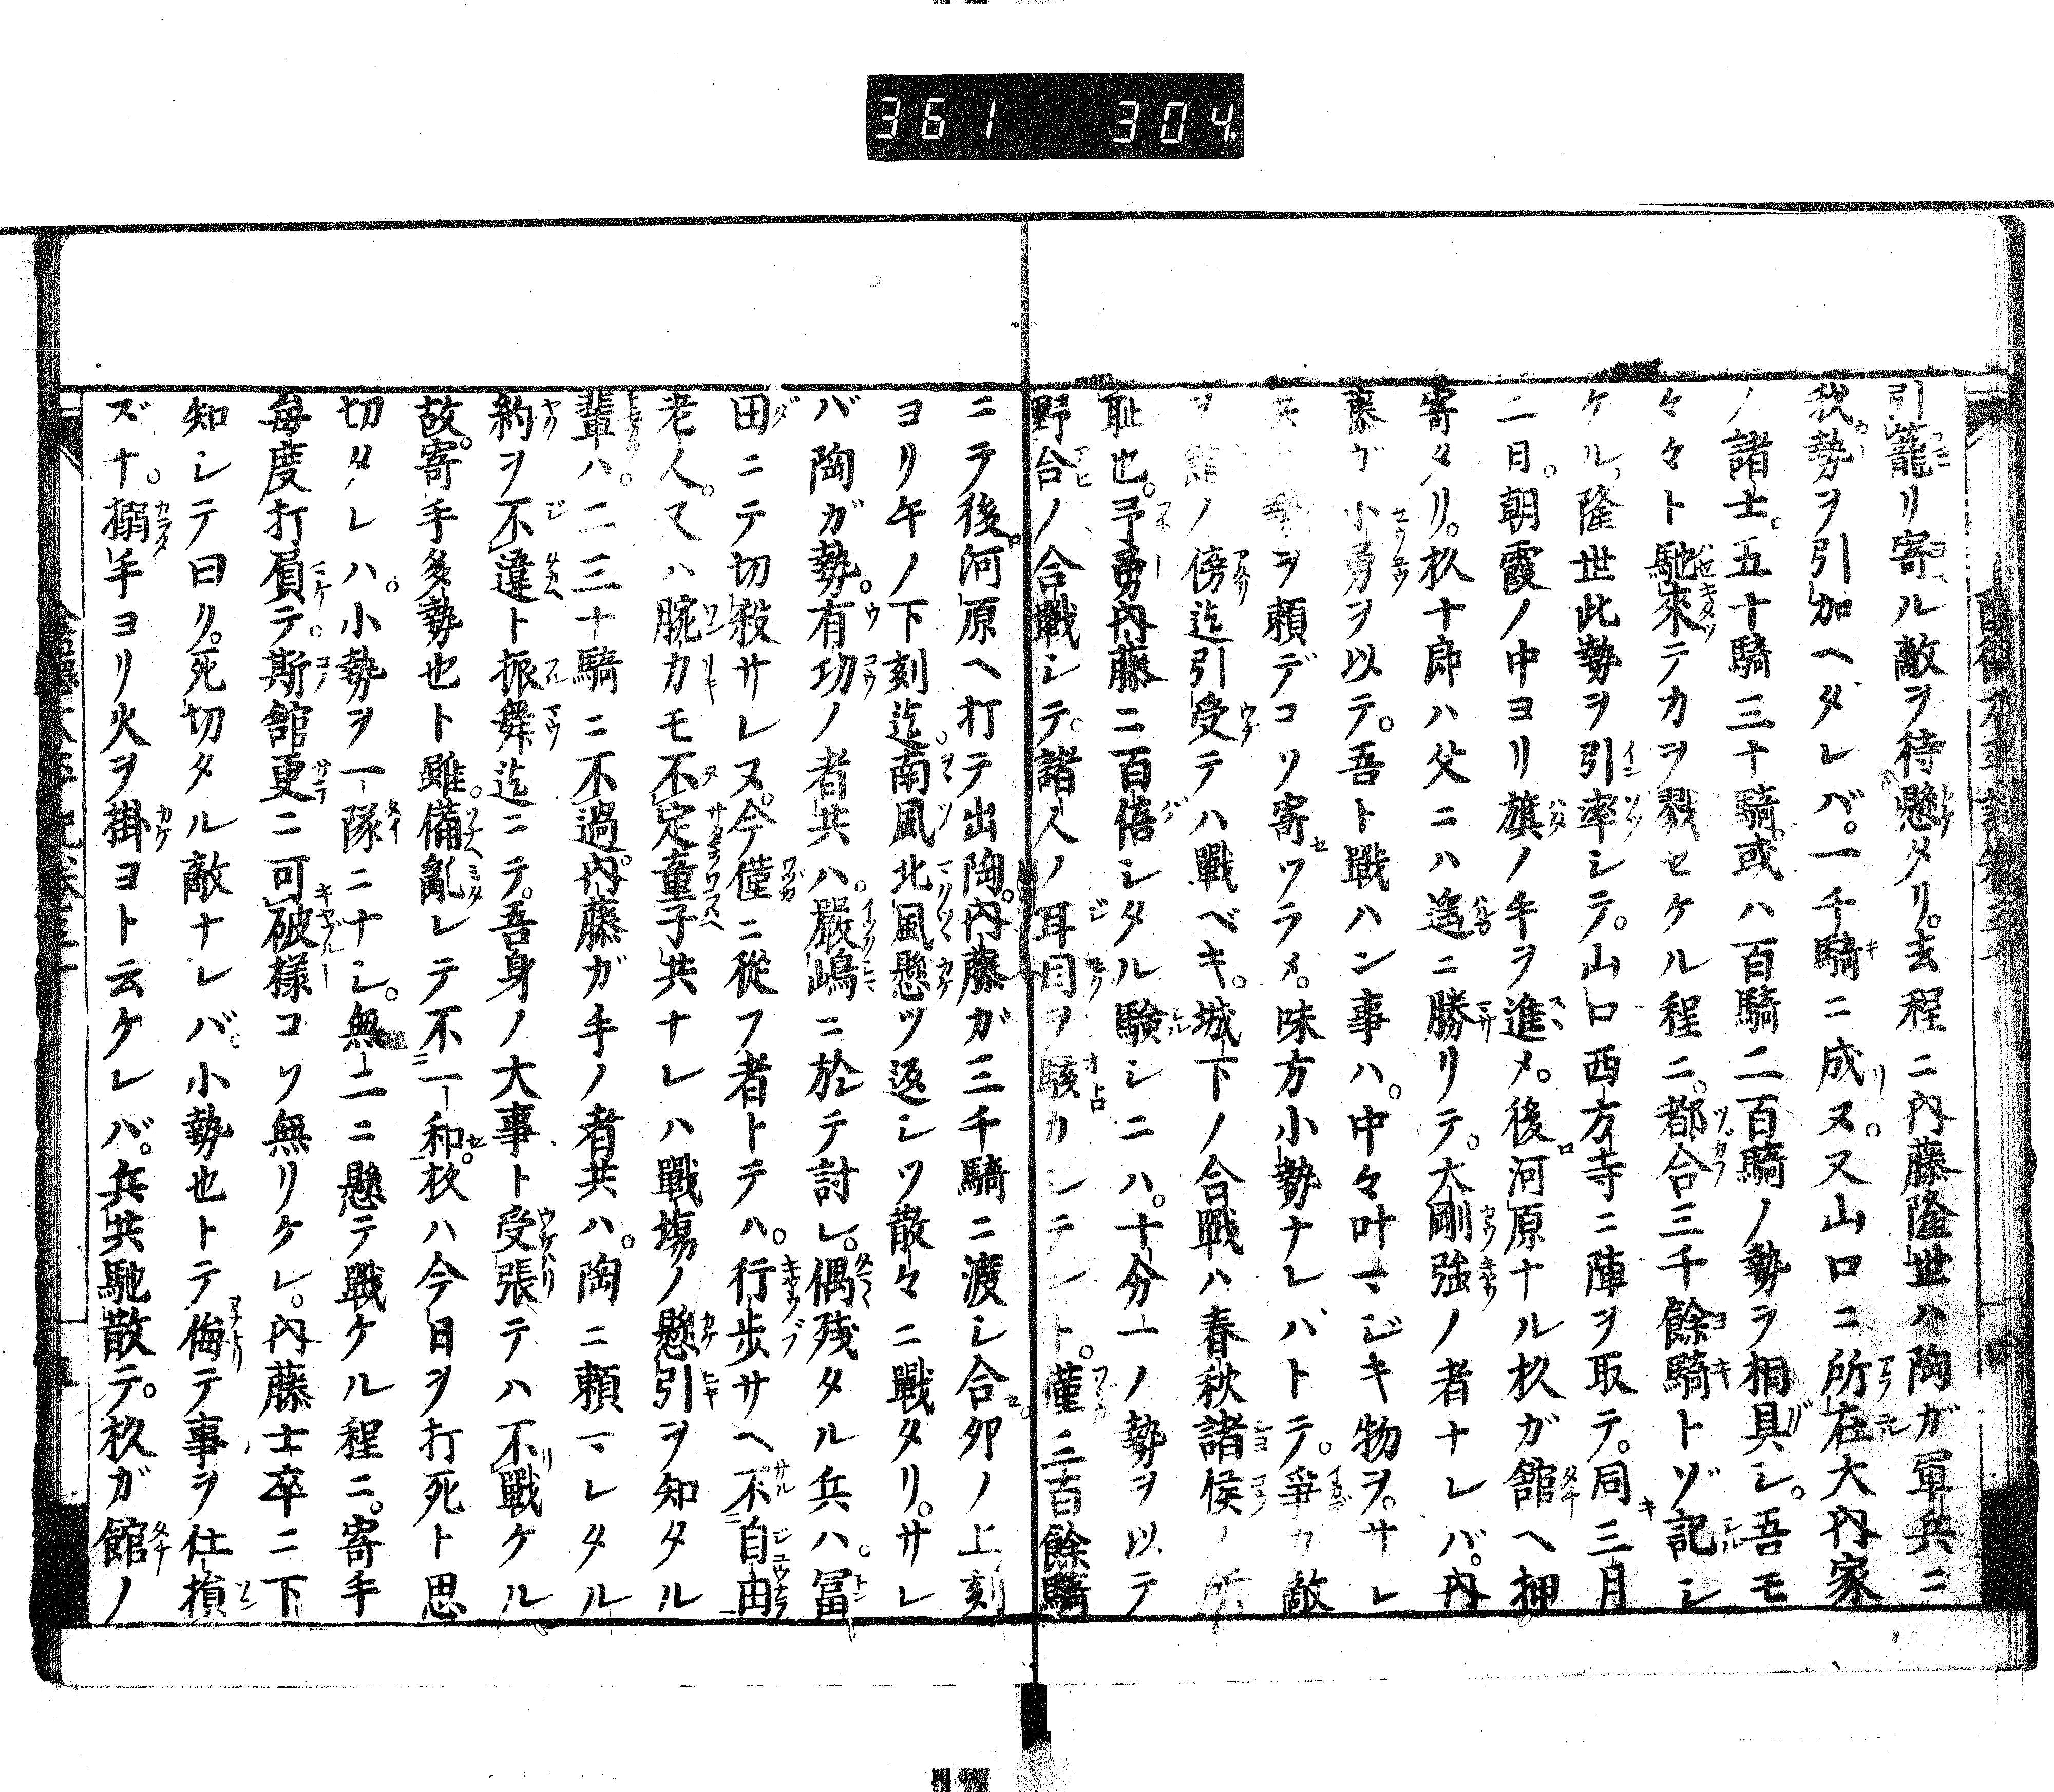 361 304
引籠リ寄ル敵ヲ待懸タリ。去程ニ内藤隆世ハ陶ガ軍兵ニ
我勢ヲ引加ヘタレバ。一千騎ニ成ヌ。又山口ニ所在大内家
ノ諸士。五十騎三十騎。或ハ百騎二百騎ノ勢ヲ相具シ。吾モ
々々ト馳來テカヲ戮セケル程ニ。都合三千餘騎トゾ記シ
ケル。隆世此勢ヲ引率シテ。山口西方寺ニ陣ヲ取テ。同三月
二日。朝霞ノ中ヨリ旗ノ手ヲ進メ。後河原ナル杦ガ館ヘ押
寄タリ。杦十郎ハ父ニハ遙ニ勝リテ。大剛強ノ者ナレバ。内
藤ガ小勇ヲ以テ。吾ト戰ハン事ハ。中々叶マジキ物ヲ。サレ
勢ヲ頼デコソ寄ツラメ。味方小勢ナレバトテ。爭カ敵
ヲ館ノ傍迄引受テハ戰ベキ。城下ノ合戰ハ春秋諸侯ノ所
耻也。予勇内藤ニ百倍シタル驗シニハ。十分一ノ勢ヲ以テ
野合ノ合戰シテ。諸人ノ耳目ヲ駭カシテント。僅二百餘騎
ニテ後。河原ヘ打テ出陶。内藤ガ三千騎ニ渡シ合。卯ノ上刻
ヨリ午ノ下刻迄。南風北風懸ツ返シツ散々ニ戰タリ。サレ
バ陶ガ勢。有功ノ者共ハ。嚴嶋ニ於テ討レ。偶残タル兵ハ。冨
田ニテ切殺サレヌ。今僅ニ從フ者トテハ。行歩サヘ不自由
老人。又ハ腕力モ不定童子共ナレハ戰塲ノ懸引ヲ知タル
輩ハ。二三十騎ニ不過。内藤ガ手ノ者共ハ。陶ニ頼マレタル
約ヲ不違ト振舞迄ニテ。吾身ノ大事ト受張テハ不戰ケル
故。寄手多勢也ト雖。備亂レテ不一和。杦ハ今日ヲ打死ト思
切タレハ。小勢ヲ一隊ニナシ。無二ニ懸テ戰ケル程ニ。寄手
毎度打屓テ。斯館更ニ可破様コソ無リケレ。内藤士卒ニ下
知シテ曰ク。死切タル敵ナレバ。小勢也トテ侮テ事ヲ仕損
ズナ。搦手ヨリ火ヲ掛ヨト云ケレバ。兵共馳散テ。杦ガ館ノ